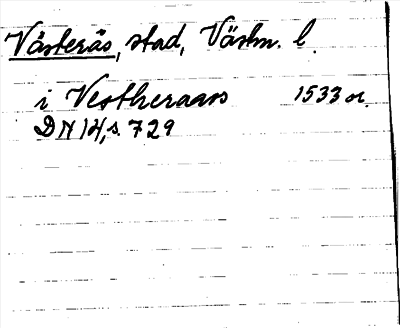 Västerås, stad, Västm. l.
i Vestheraars 1533 or.
DN 14, s. 729